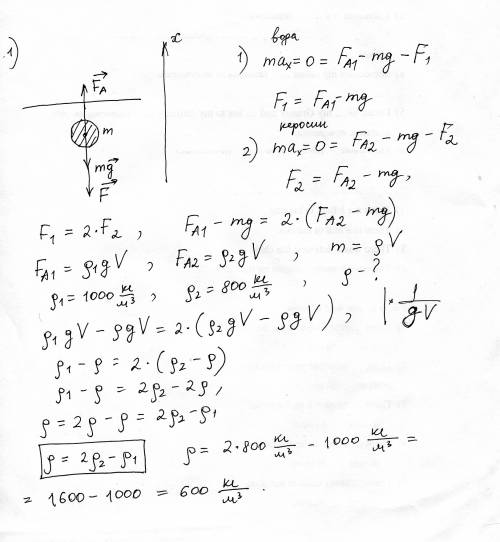 1)
x
F_A
m
mg
F
вода
1) ma_x = 0 = F_A1 - mg - F_1
F_1 = F_A1 - mg
керосин
2) ma_x = 0 = F_A2 - mg - F_2
F_2 = F_A2 - mg,
F_1 = 2·F_2 , F_A1 - mg = 2·(F_A2 - mg)
F_A1 = ρ_1 g V , F_A2 = ρ_2 g V , m = ρV
ρ_1 = 1000 кг/м³ , ρ_2 = 800 кг/м³ , ρ - ?
ρ_1 g V - ρ g V = 2·(ρ_2 g V - ρ g V) , | * 1/gV
ρ_1 - ρ = 2·(ρ_2 - ρ)
ρ_1 - ρ = 2ρ_2 - 2ρ ,
ρ = 2ρ - ρ = 2ρ_2 - ρ_1
ρ = 2ρ_2 - ρ_1 ρ = 2·800 кг/м³ - 1000 кг/м³ =
= 1600 - 1000 = 600 кг/м³ .